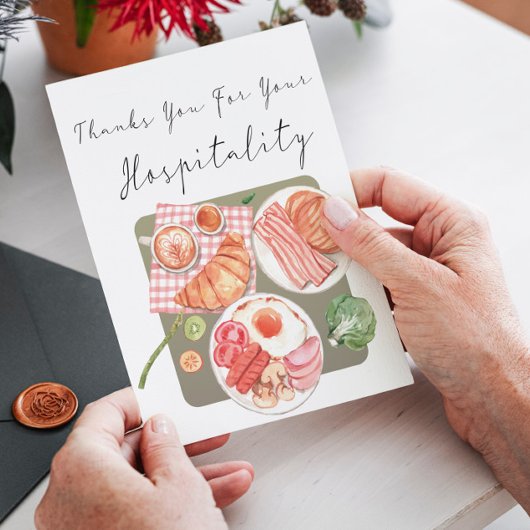 Thanks You For Your
Hospitality